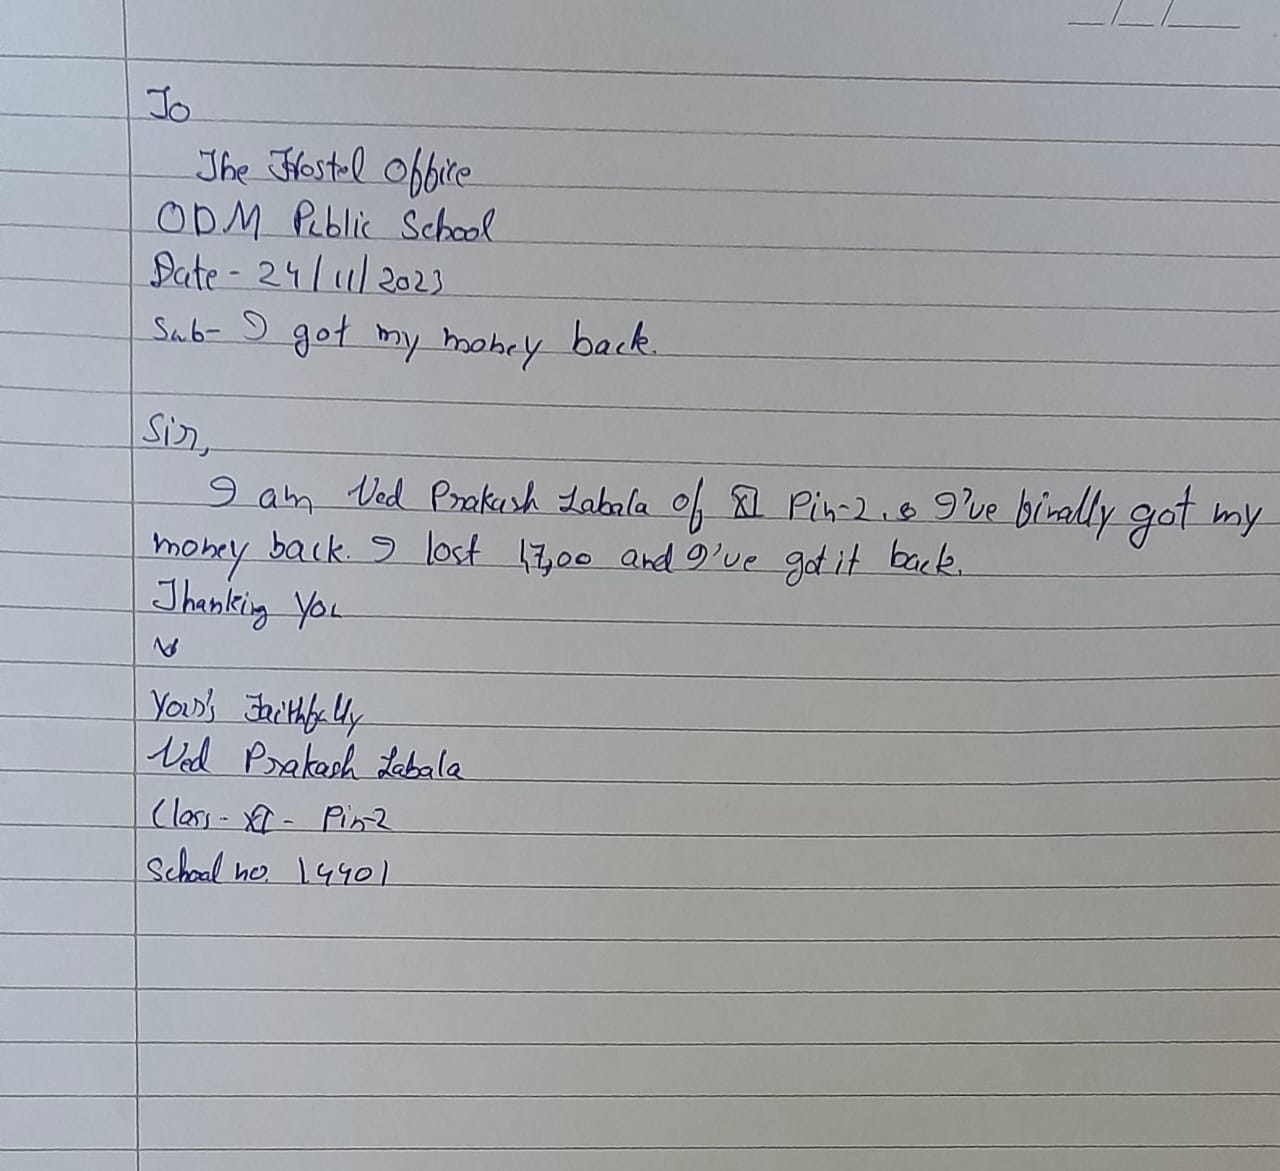 To
The Hostel Office
ODM Public School
Date - 24/11/2023
Sub- I got my money back.
Sir,
I am Ved Prakash Labala of XI Pin-2. I've finally got my
money back. I lost 17,00 and I've got it back.
Thanking You
Your's Faithfully
Ved Prakash Labala
Class - XI - Pin-2
School no. 14401